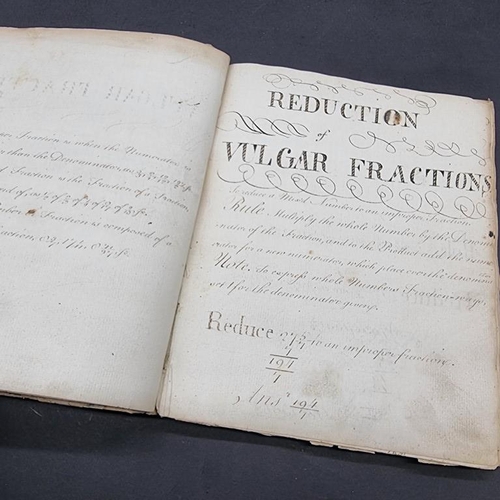 Fraction is when the Numerator is
than the Denominator as
Fraction is the Fraction of a Fraction
Fraction is composed of a
Fraction, as
REDUCTION
of
VULGAR FRACTIONS
To reduce a Mixt Number to an improper Fraction
Rule. Multiply the whole Number by the Denomi-
nator of the Fraction, and to the Product add the nume-
rator for a new numerator, which place over the denomina
Note. To express whole Numbers Fraction-ways
set 1 for the denominator given.
Reduce to an improper fraction.
4
197
4
Ans